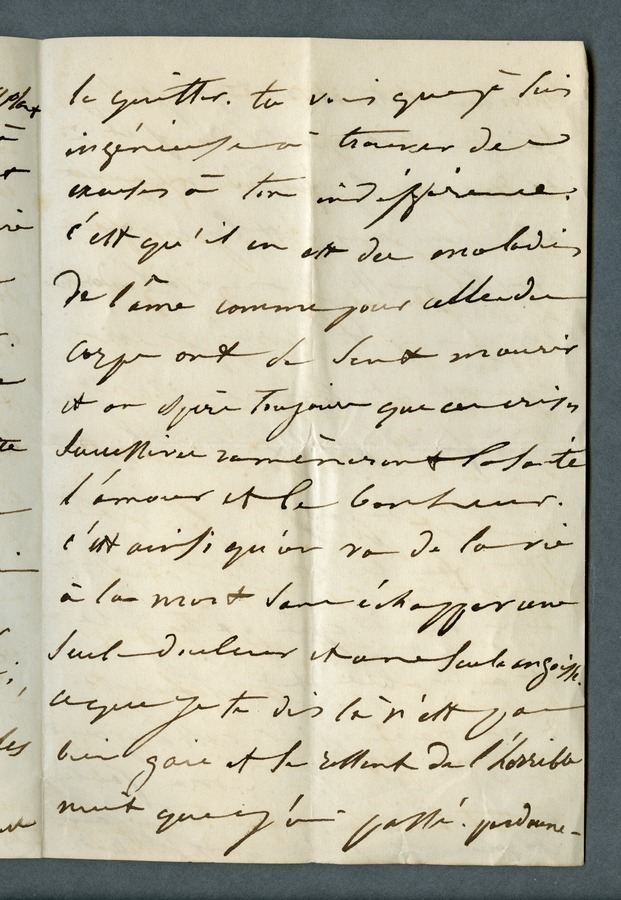 le quitter. tu vois que je suis
ingénieuse à trouver des
excuses à ton indifférence.
c'est qu'il en est des maladies
De l'âme comme pour celles du
corps on se sent mourir
et on espère toujours que ces crises
successives ramèneront la santé
l'amour et le bonheur.
c'est ainsi qu'on va de la vie
à la mort sans échapper une
seule douleur et une seule angoisse.
ce que je te dis là n'est pas
bien gaie et se ressent de l'horrible
nuit que j'ai passé. pardonne-